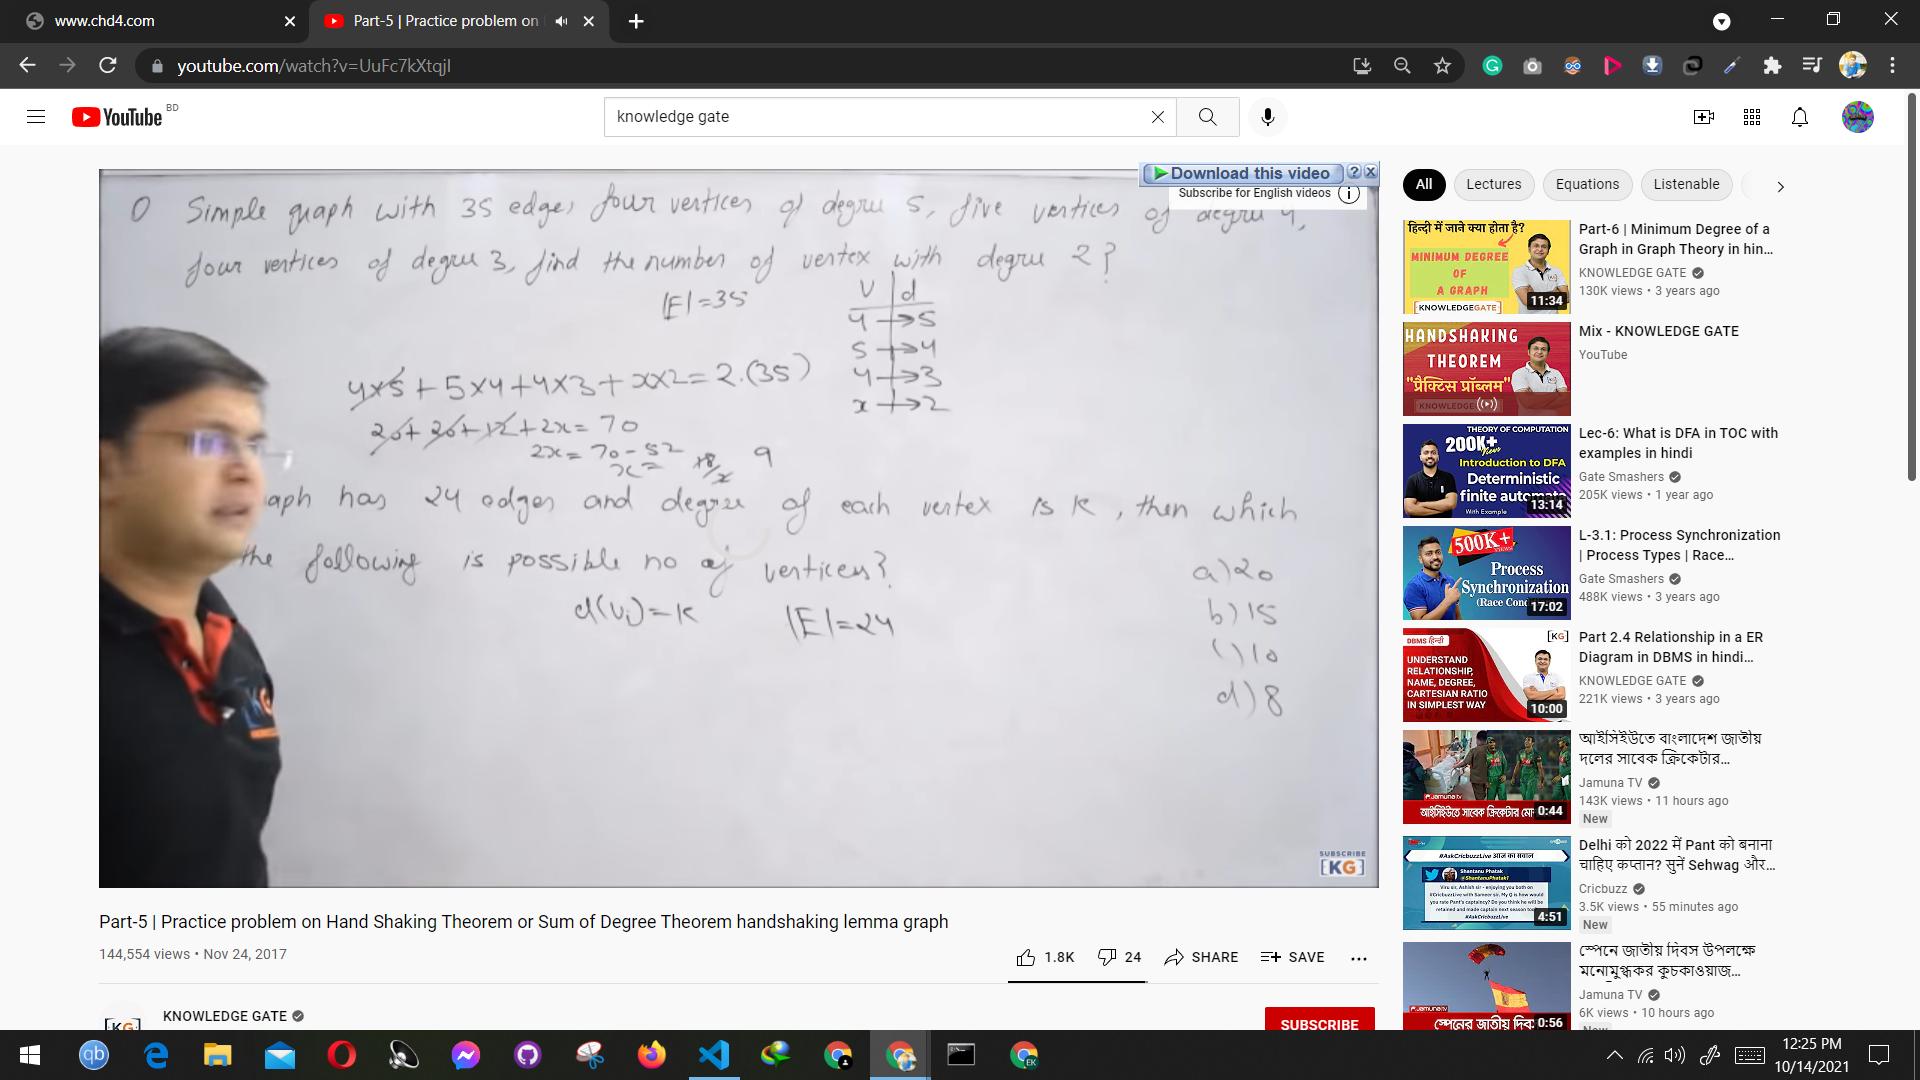 www.chd4.com
Part-5 | Practice problem on
youtube.com/watch?v=UuFc7kXtqjI
YouTube BD
knowledge gate
Download this video ? X
Subscribe for English videos i
Q Simple graph with 35 edges four vertices of degree 5, five vertices of degree 4,
four vertices of degree 3, find the number of vertex with degree 2?
|E|=35
V d
4→5
5→4
4→3
x→2
4x5+5x4+4x3+xx2=2.(35)
20+20+12+2x=70
2x=70-52
x= 18/2 9
aph has 24 edges and degree of each vertex is K, then which
the following is possible no of vertices?
d(Vi)=K |E|=24
a)20
b)15
c)10
d)8
SUBSCRIBE
[KG]
Part-5 | Practice problem on Hand Shaking Theorem or Sum of Degree Theorem handshaking lemma graph
144,554 views • Nov 24, 2017
1.8K 24 SHARE SAVE
[KG]
KNOWLEDGE GATE
SUBSCRIBE
All Lectures Equations Listenable
हिन्दी में जाने क्या होता है?
MINIMUM DEGREE
OF
A GRAPH
[KNOWLEDGEGATE]
11:34
Part-6 | Minimum Degree of a
Graph in Graph Theory in hin...
KNOWLEDGE GATE
130K views • 3 years ago
HANDSHAKING
THEOREM
"प्रैक्टिस प्रॉब्लम"
KNOWLEDGE
Mix - KNOWLEDGE GATE
YouTube
THEORY OF COMPUTATION
200K+
Views
Introduction to DFA
Deterministic
finite automata
With Example
13:14
Lec-6: What is DFA in TOC with
examples in hindi
Gate Smashers
205K views • 1 year ago
500K+
Process
Synchronization
(Race Con
17:02
L-3.1: Process Synchronization
| Process Types | Race...
Gate Smashers
488K views • 3 years ago
DBMS हिन्दी
[KG]
UNDERSTAND
RELATIONSHIP,
NAME, DEGREE,
CARTESIAN RATIO
IN SIMPLEST WAY
10:00
Part 2.4 Relationship in a ER
Diagram in DBMS in hindi...
KNOWLEDGE GATE
221K views • 3 years ago
Jamuna tv
আইসিইউতে সাবেক ক্রিকেটার মো
0:44
আইসিইউতে বাংলাদেশ জাতীয়
দলের সাবেক ক্রিকেটার...
Jamuna TV
143K views • 11 hours ago
New
#AskCricbuzzLive आज का सवाल
Shantanu Phatak
@ShantanuPhatak1
#AskCricbuzzLive
4:51
Delhi को 2022 में Pant को बनाना
चाहिए कप्तान? सुनें Sehwag और...
Cricbuzz
3.5K views • 55 minutes ago
New
Jamuna tv
স্পেনের জাতীয় দিব
0:56
স্পেনে জাতীয় দিবস উপলক্ষে
মনোমুগ্ধকর কুচকাওয়াজ...
Jamuna TV
6K views • 10 hours ago
New
qb
EK
12:25 PM
10/14/2021